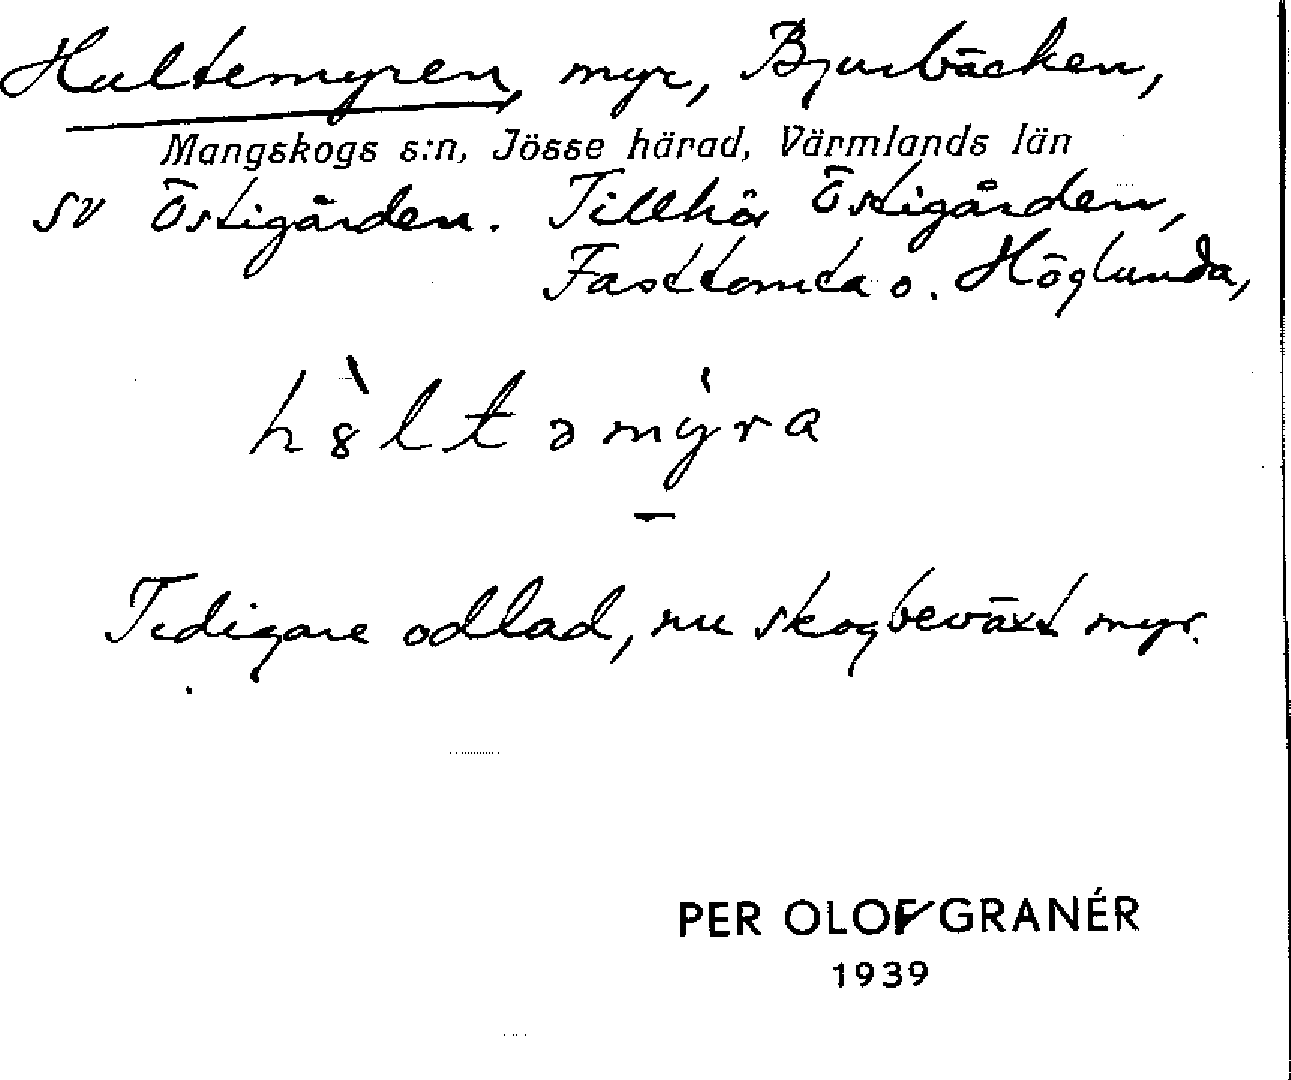 Hultemyren, myr, Bjurbäcken,
Mangskogs s:n, Jösse härad, Värmlands län
SV Östigården. Tillhör Östigården,
Fasttomta o. Höglunda,
h8̀ltəmy̍ra
Tidigare odlad, nu skogbeväxt myr.
PER OLOF GRANÉR
1939